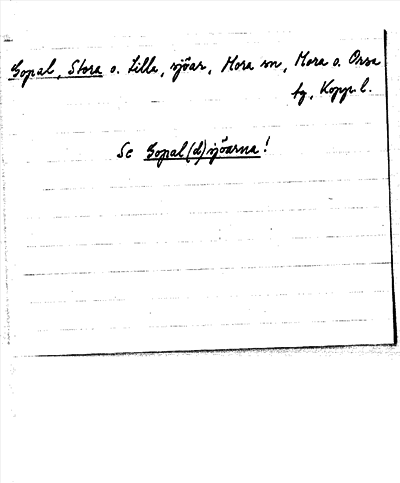 Gopal, Stora o. Lilla, sjöar, Mora sn, Mora o. Orsa
tg, Kopp. l.
Se Gopal(d)sjöarna!